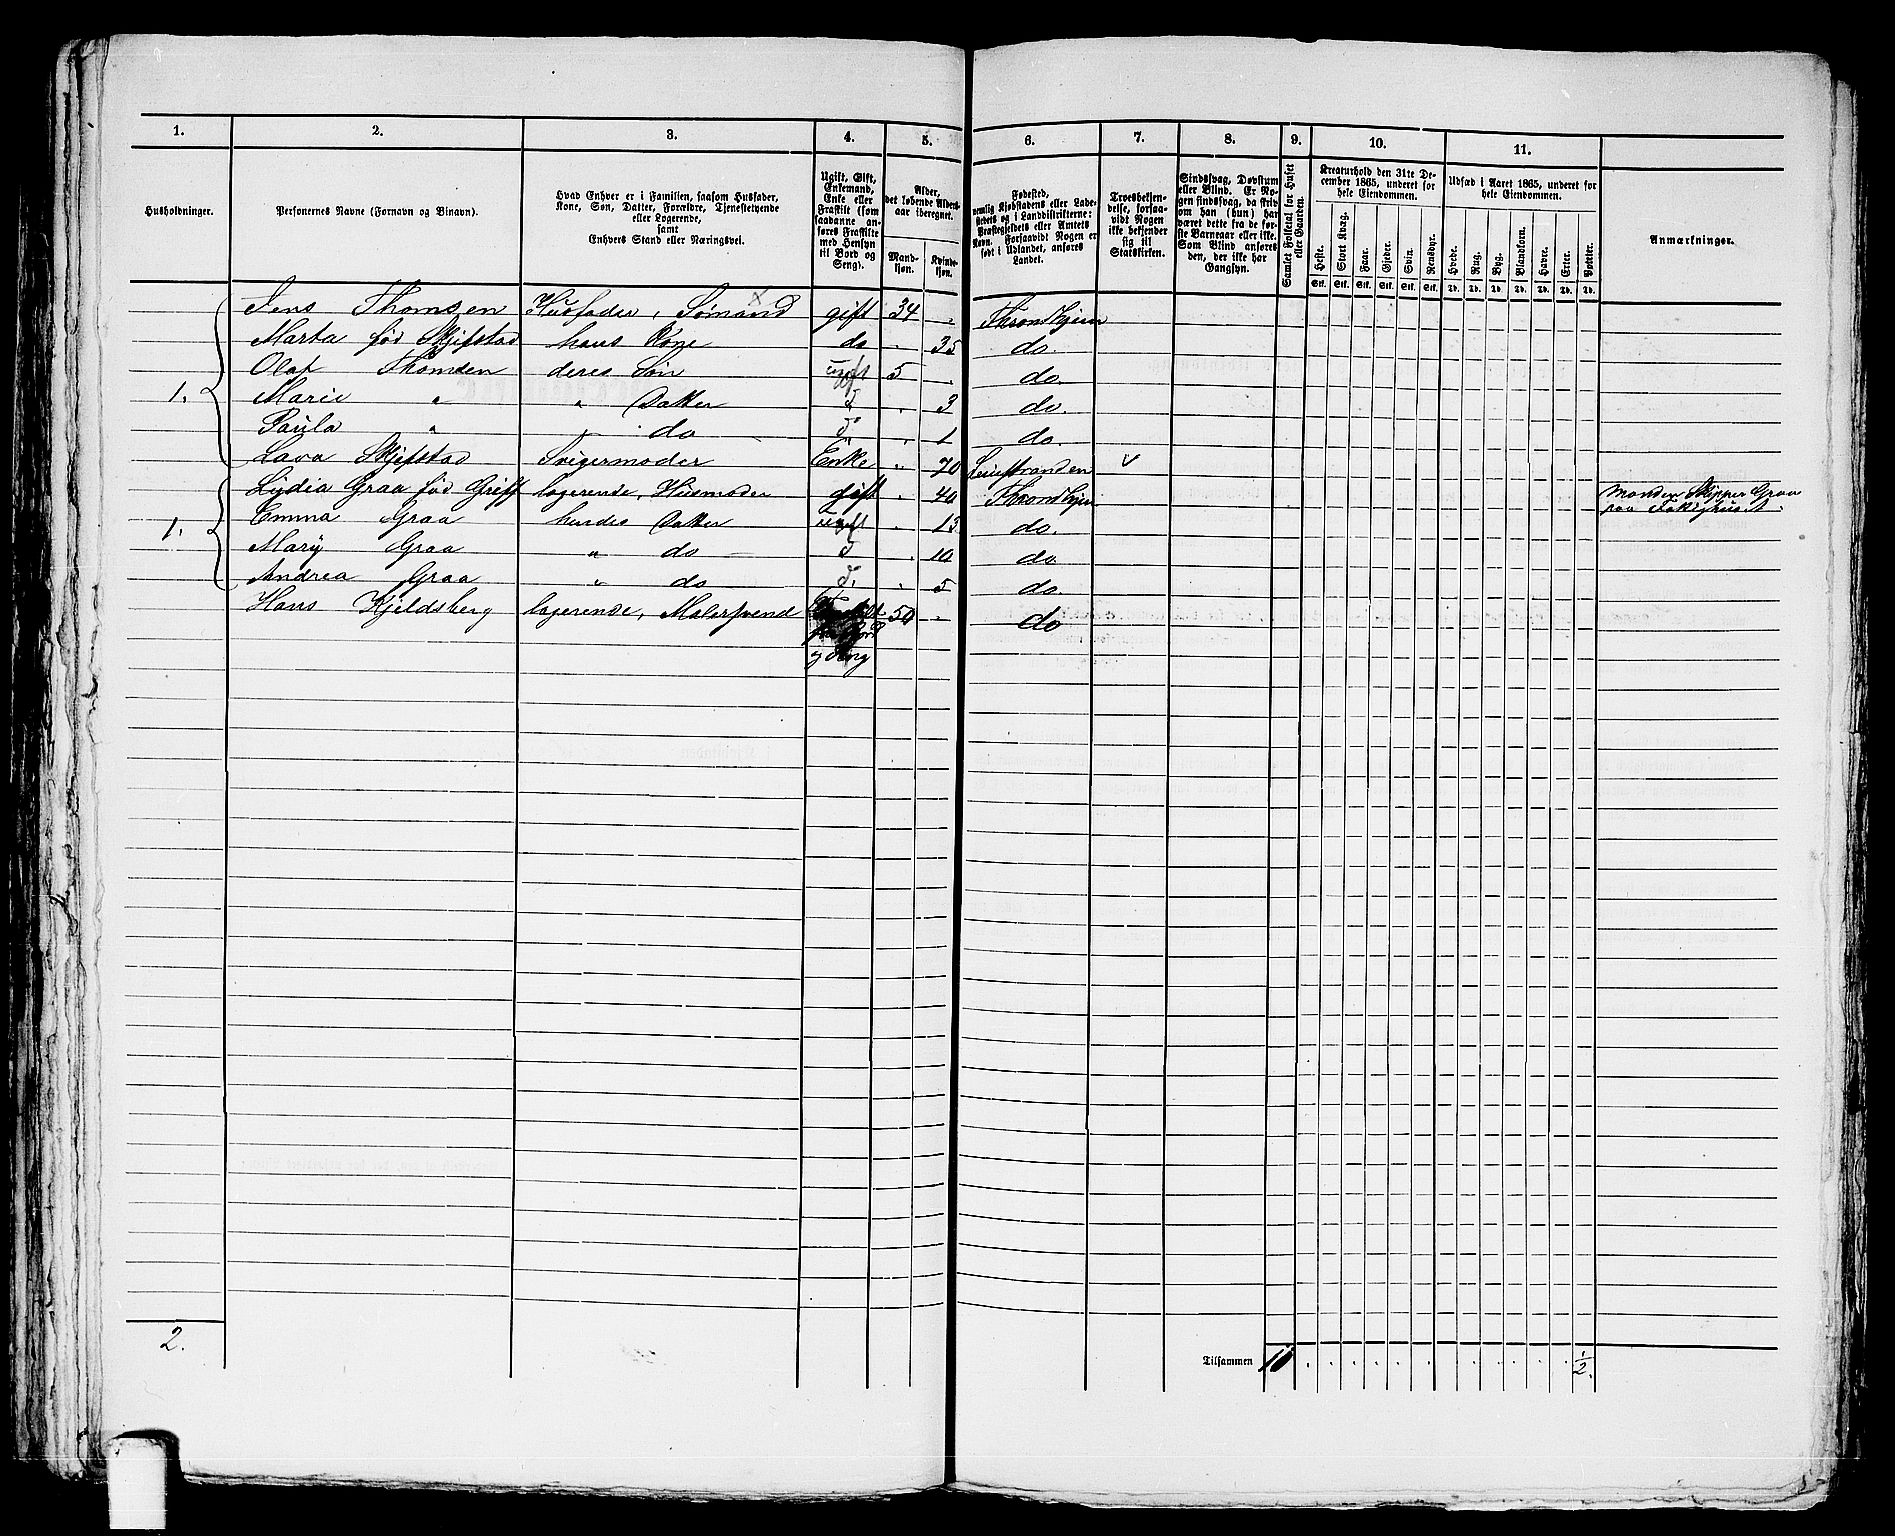 1. 2. 3. 4. 5. 6. 7. 8. 9. 10. 11.
Husholdninger.
Personernes Navne (Fornavn og Binavn).
Hvad Enhver er i Familien, saasom Husfader,
Kone, Søn, Datter, Forældre, Tjenestetyende
eller Logerende,
samt
Enhvers Stand eller Næringsvei.
Ugift, Gift,
Enkemand,
Enke eller
Fraskilt (som
saadanne an-
føres Fraskilte
med Hensyn
til Bord og
Seng).
Alder,
det løbende Alders-
aar iberegnet.
Mand-
kjøn.
Kvinde-
kjøn.
Fødested,
nemlig Kjøbstadens eller Lade-
stedets og i Landdistrikterne:
Præstegjeldets eller Amtets
Navn. Forsaavidt Nogen er
født i Udlandet, anføres
Landet.
Troesbekjen-
delse, forsaa-
vidt Nogen
ikke bekjender
sig til
Statskirken.
Sindssvag, Døvstum
eller Blind. Er No-
gen sindssvag, da skriv
om han (hun) har
været dette fra de før-
ste Barneaar eller ikke.
Som Blind anføres
den, der ikke har
Gangsyn.
Samlet Folketal for Huset
eller Gaarden.
Kreaturhold den 31te De-
cember 1865, underet for
hele Eiendommen.
Heste. Stort Kvæg. Faar. Gjeder. Svin. Rensdyr.
Stk. Stk. Stk. Stk. Stk. Stk.
Udsæd i Aaret 1865, underet for
hele Eiendommen.
Hvede. Rug. Byg. Blandkorn. Havre. Erter. Poteter.
Td. Td. Td. Td. Td. Td. Td.
Anmærkninger.
Jens Thomsen Husfader, Sømand gift 34 Throndhjem
Marta fød Skjefstad hans Kone do 35 do.
Olaf Thomsen deres Søn ugift 5 do.
1. Marie " " Datter d 3 do.
Paula " " do d 1 do.
Lava Skjefstad Svigermoder Enke " 70
Lydia Graa fød Griff logerende, Husmoder gift 40 Throndhjem Manden Skipper Graa
paa
1. Emma Graa hendes Datter ugift 13 do.
Mary Graa " do d 10 do
Andrea Graa " do d. 5 do
Hans Kjeldsberg logerende, Malersvend 50 do
og Seng
2.
Tilsammen 10 ½.